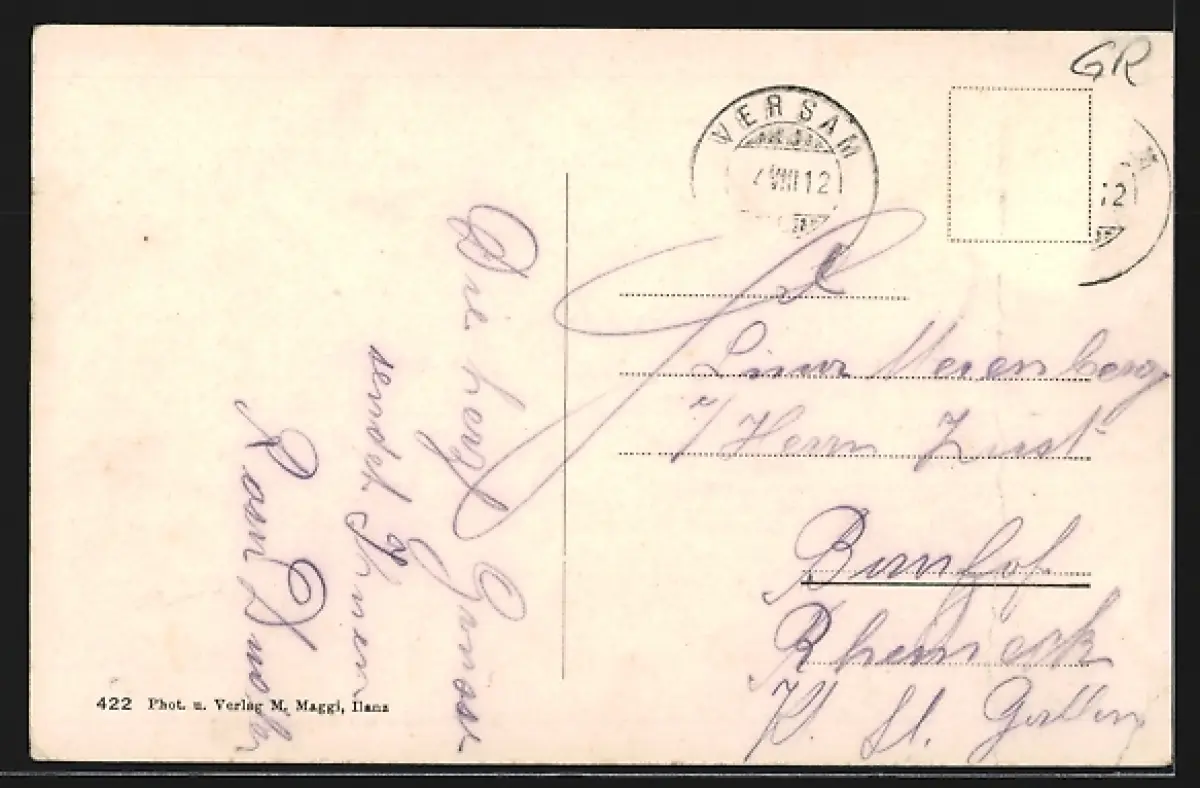 GR
VERSAM
VIII 12
12
Die herzl Grüsse
sendet Ihnen
Rosa
Meienberg
Herrn Züst
Bahnhof
Rheineck
Kt. St. Gallen
422 Phot. u. Verlag M. Maggi, Ilanz